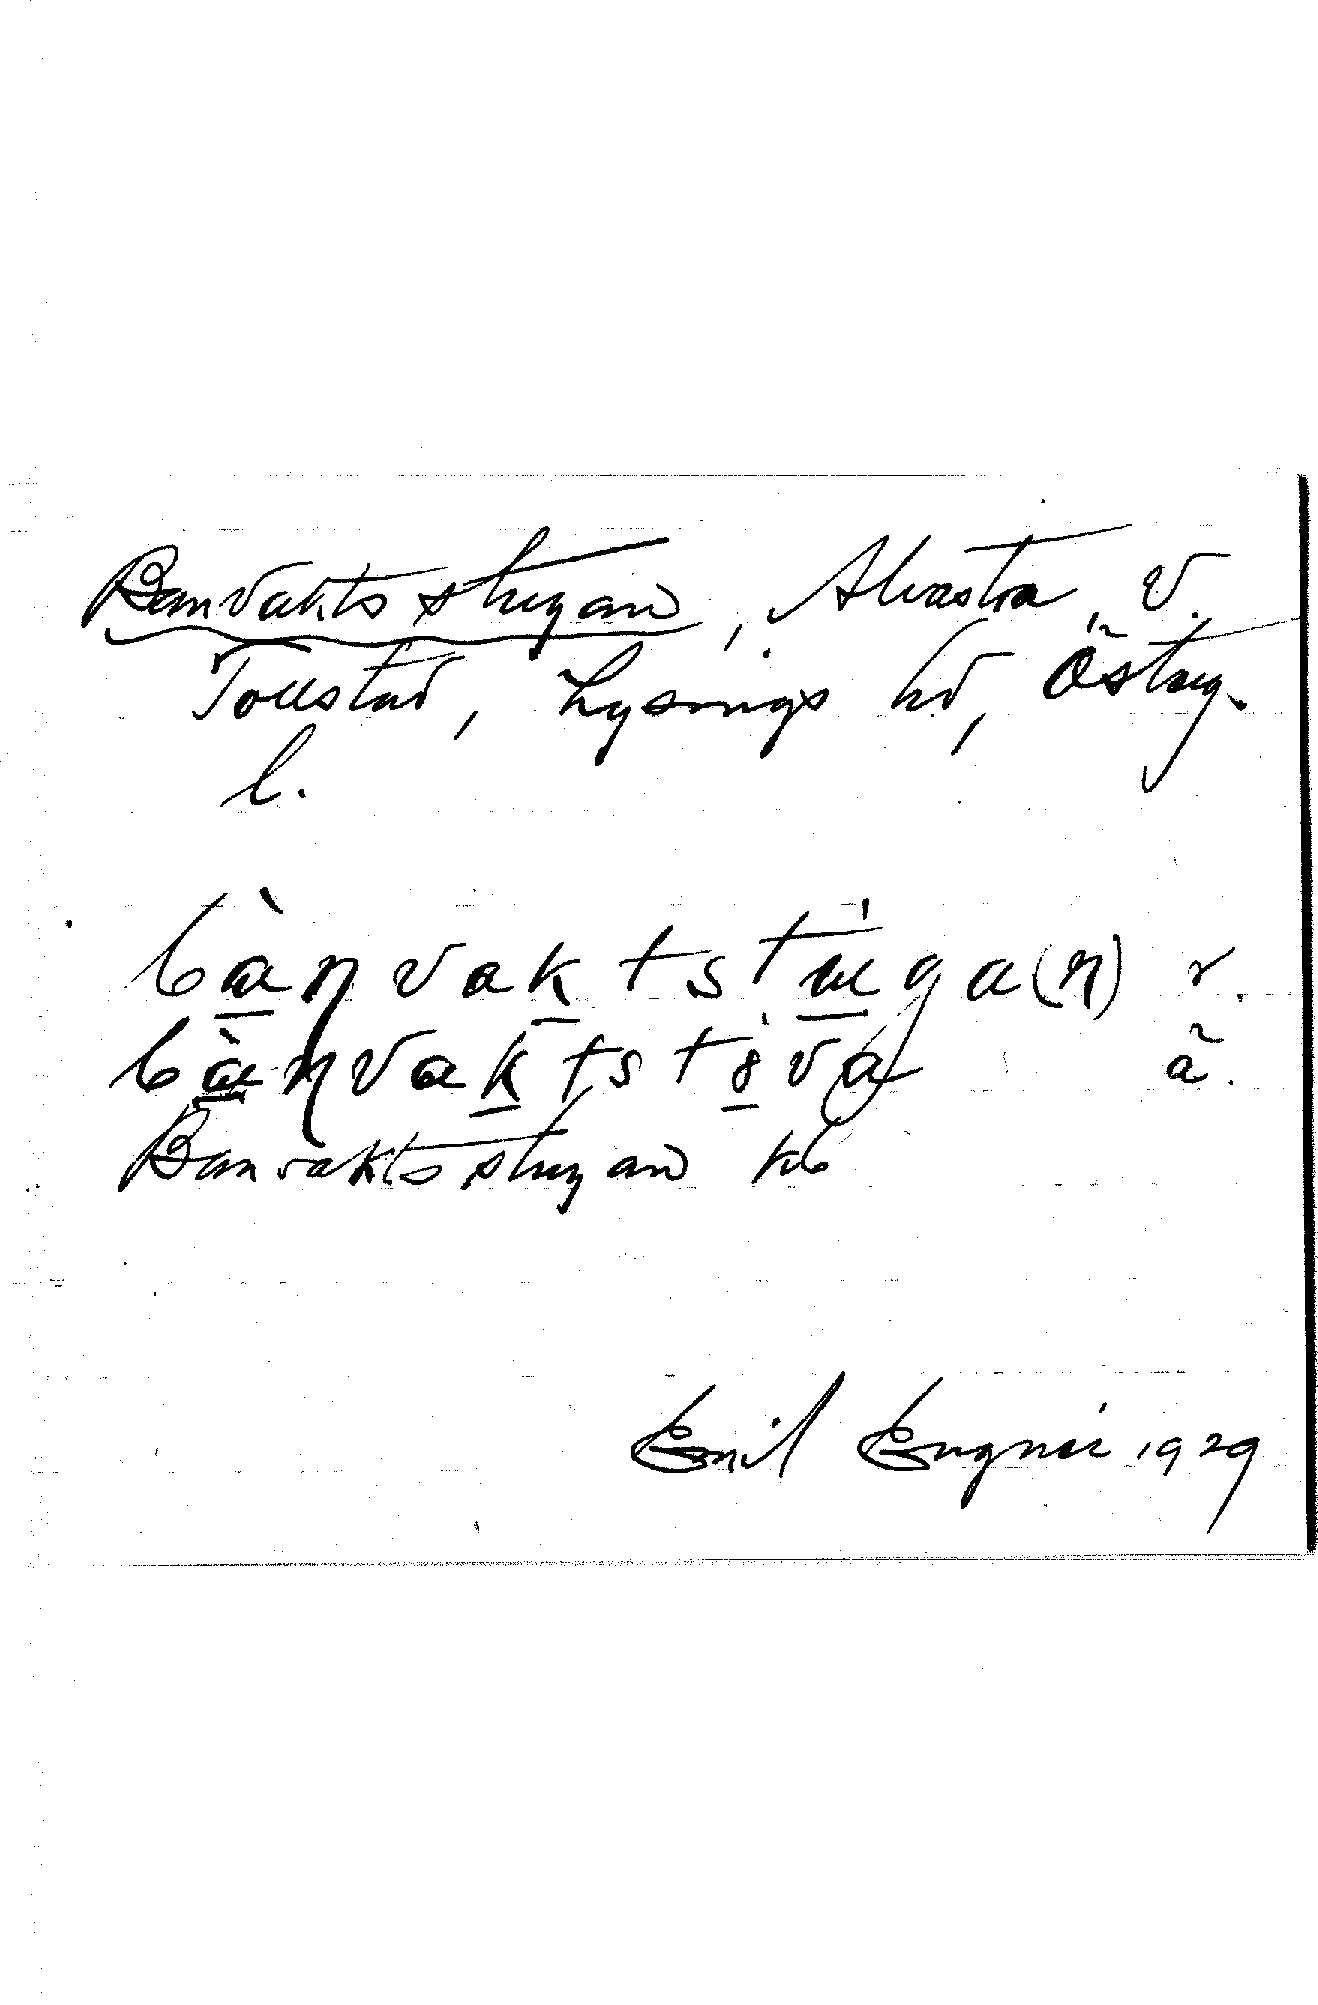 Banvaktsstugan, Alvastra, V.
Tollstad, Lysings hd, Östergötl.
l.
bànvaktstúga(n) r.
bànvaktstôva ä.
Banvaktsstugan kb
Emil Lugnér 1929